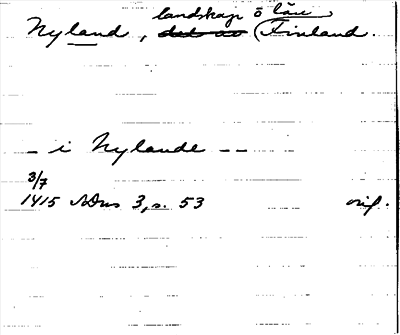 landskap o län
Nyland, (Finland.
- i Nylande --
3/7
1415 3, s. 53 orig.